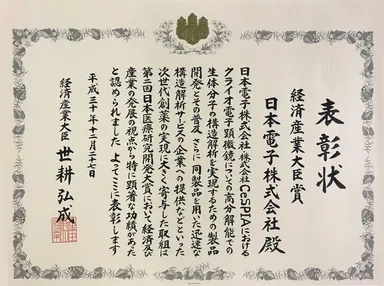 表彰状
経済産業大臣賞
日本電子株式会社 殿
日本電子株式会社 株式会社CeSPIAにおける
クライオ電子顕微鏡についての高分解能での
生体分子の構造解析を実現するための製品
開発とその普及 さらに同製品を用いた迅速な
構造解析サービスへ企業への提供などといった
次世代創薬の実現に大きく寄与した取組は
第二回日本医療研究開発大賞において経済及び
産業の発展の視点から特に顕著な功績があった
と認められました よってここに表彰します
平成三十年十二月二十七日
経済産業大臣 世耕弘成